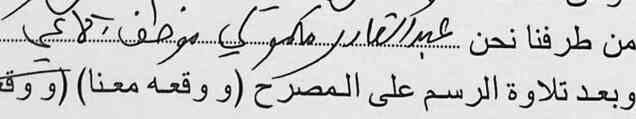 من طرفنا نحن عبد القادر موظف
وبعد تلاوة الرسم على المصرح (و وقعه معنا) (و وقع